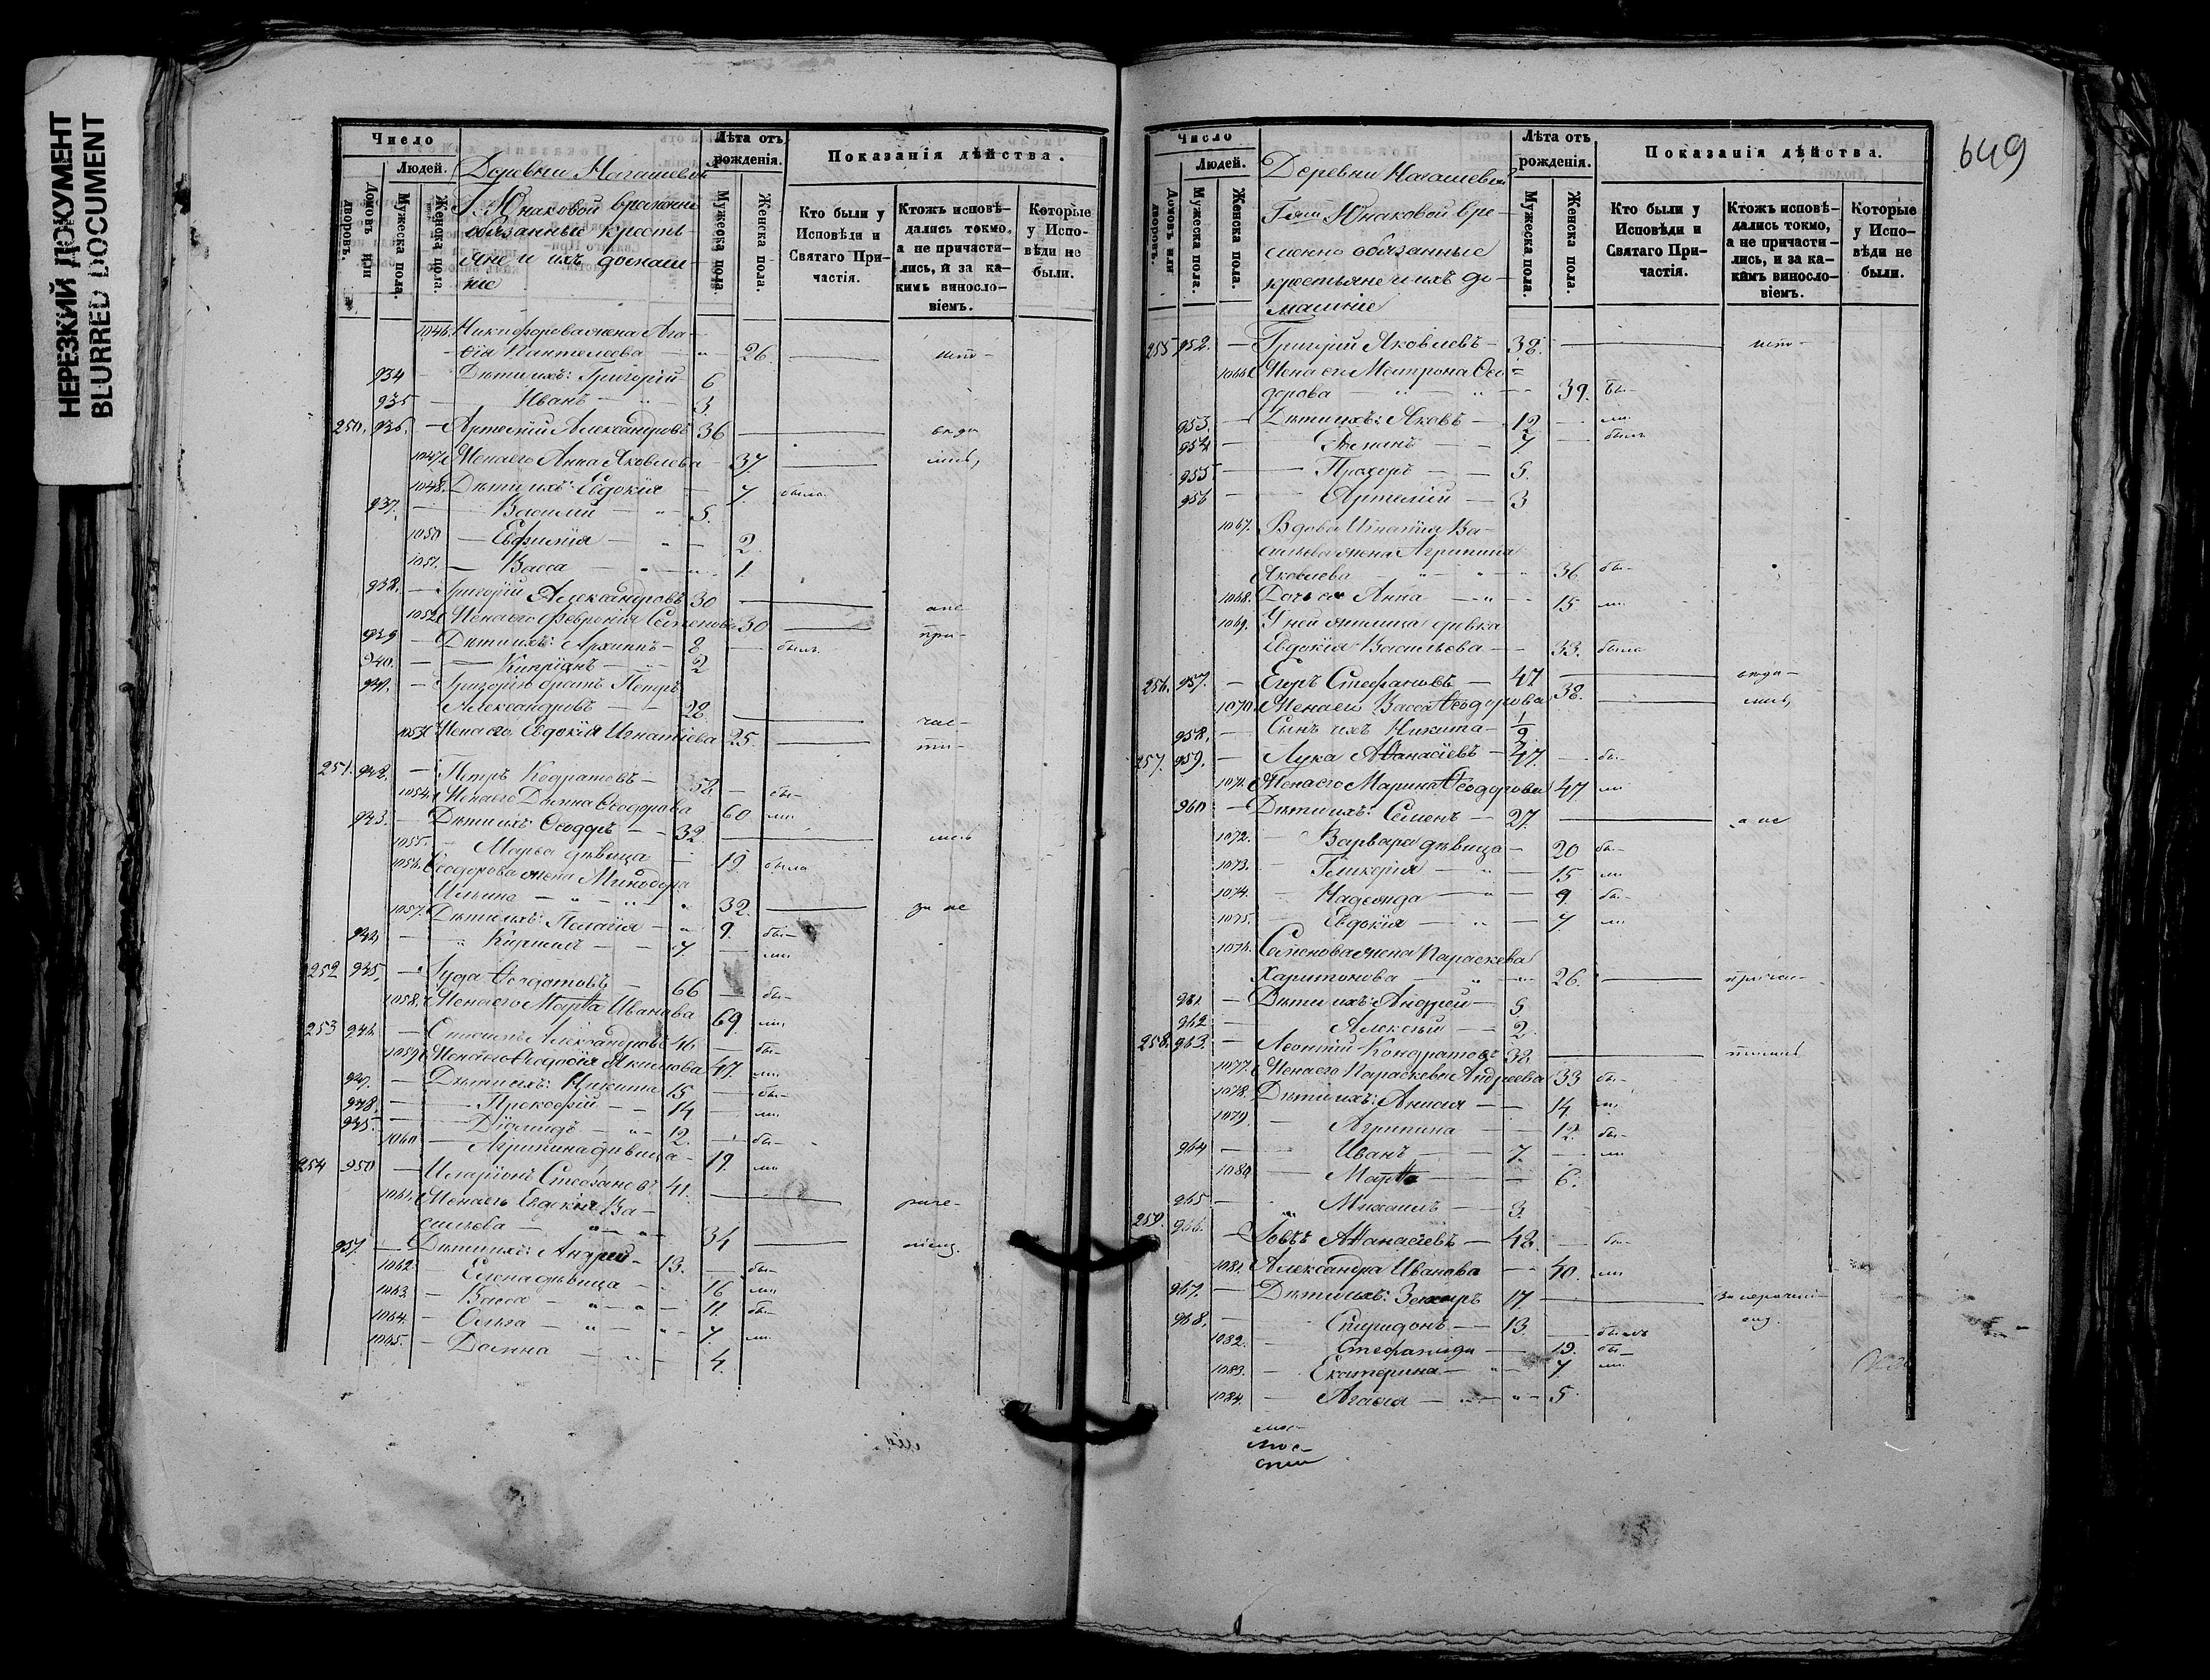 НЕРЕЗКИЙ ДОКУМЕНТ
BLURRED DOCUMENT
Число
Людей.
Домовъ или дворовъ.
Мужеска пола.
Женска пола.
Деревни
Г. Юнаковой временно
обязанные кресть-
яне и ихъ домаш-
ніе
Лѣта отъ рожденія.
Мужеска пола.
Женска пола.
Показанія дѣйства.
Кто были у Исповѣди и Святаго Причастія.
Ктожъ исповѣ-
дались токмо,
а не причасти-
лись, и за ка-
кимъ винослo-
віемъ.
Которые у Испо-
вѣди не были.
1046. Никифорова жена Ага-
ѳія Пантелеева 26. испо-
934 Дѣти ихъ: Григорій 6
935 Иванъ 3.
250. 936. Артемій Александровъ 36 вѣда
1047. Жена его Анна Яковлева 37 лись,
1048. Дѣти ихъ: Евдокія 7. была
937. Василій 5.
1050 Евфимія 2
1051. Васса 1.
938. Григорій Александровъ 30 а не
1052. Жена его Февронія Семенова 30 при-
939 Дѣти ихъ: Архипъ 8 былъ
940. Кипріянъ 2
941. Григорія братъ Петръ
Александровъ 28. час-
1053. Жена его Евдокія Игнатіева 25. ти-
251. 942. Петръ Кодратовъ 58 бы-
1054. Жена его Домна Ѳеодорова 60 ли
943. Дѣти ихъ: Ѳеодоръ 32. лись
1055. Марья дѣвица 19. была
1056. Ѳеодорова жена Минодора
Ильина 32. за не
1057. Дѣти ихъ: Пелагія 9. бы-
944 Кириллъ 7. ли
252 945. Іуда 66 бы-
1058. Жена его Марѳа Иванова 69 ли
253 946. Александровъ 46 бы-
1059. Жена его Ѳеодосія Акимова 47. ли
947. Дѣти ихъ: Никита 15 бы-
948. Прокофій 14 ли
945. Діомидъ 12. бы-
1060 Агрипина дѣвица 19. ли
254 950 Иларіонъ Стефановъ 41. раче-
1061. Жена его Евдокія Ва-
сильева 34 ніемъ.
957. Дѣти ихъ: Андрей 13. бы-
1062. Елена дѣвица 16 ли
1063. Васса 11. бы-
1064. Ольга 7. ли
1065. Домна 4.
649
Число
Людей.
Домовъ или дворовъ.
Мужеска пола.
Женска пола.
Деревни
Г-жи Юнаковой вре-
менно обязанные
крестьяне и ихъ до-
машніе
Лѣта отъ рожденія.
Мужеска пола.
Женска пола.
Показанія дѣйства.
Кто были у Исповѣди и Святаго Причастія.
Ктожъ исповѣ-
дались токмо,
а не причасти-
лись, и за ка-
кимъ винослo-
віемъ.
Которые у Испо-
вѣди не были.
255 952. Григорій Яковлевъ 38. испо-
1066. Жена его Матрона Ѳео-
дорова 39. бы-
953. Дѣти ихъ: Яковъ 12 ли
954 7. былъ
955 Прохоръ 5.
956 Артемій 3
1067. Вдова Игнатія Ва-
сильева жена Агрипина
Яковлева 36 бы-
1068. Дочь ея Анна 15 ли
1069. У ней жилица дѣвка
Евдокія Васильева 33. была
256. 957. Егоръ Стефановъ 47. вѣда-
1070. Жена его Васса Ѳеодорова 38. лись,
958. Сынъ ихъ Никита 1/2
257. 959. Лука Аѳанасіевъ 47. бы-
1071. Жена его Марина Ѳеодорова 47 ли
960 Дѣти ихъ: Семенъ 27. а не
1072. Варвара дѣвица 20 бы-
1073. Гликерія 15 ли
1074. Надежда 9. бы-
1075. Евдокія 7. ли
1076. Семенова жена Параскева
Харитонова 26. причас-
961. Дѣти ихъ: Андрей 5.
962 Алексій 2.
258. 963. Леонтій Кондратовъ 38. тились
1077. Жена его Параскева Андреева 33 бы-
1078. Дѣти ихъ: Анисія 14. ли
1079. Агрипина 12. бы-
964 Иванъ 7. ли
1080 Марѳа 6.
965 Михаилъ 3.
259. 966. Іовъ Аѳанасіевъ 48. бы-
1081. Александра Иванова 40. ли
967. Дѣти ихъ: 17. за нерачені-
емъ.
968. Спиридонъ 13. былъ
1082. Стефанида 19. бы-
1083. Екатерина 7 ли
1084. Агаѳія 5.